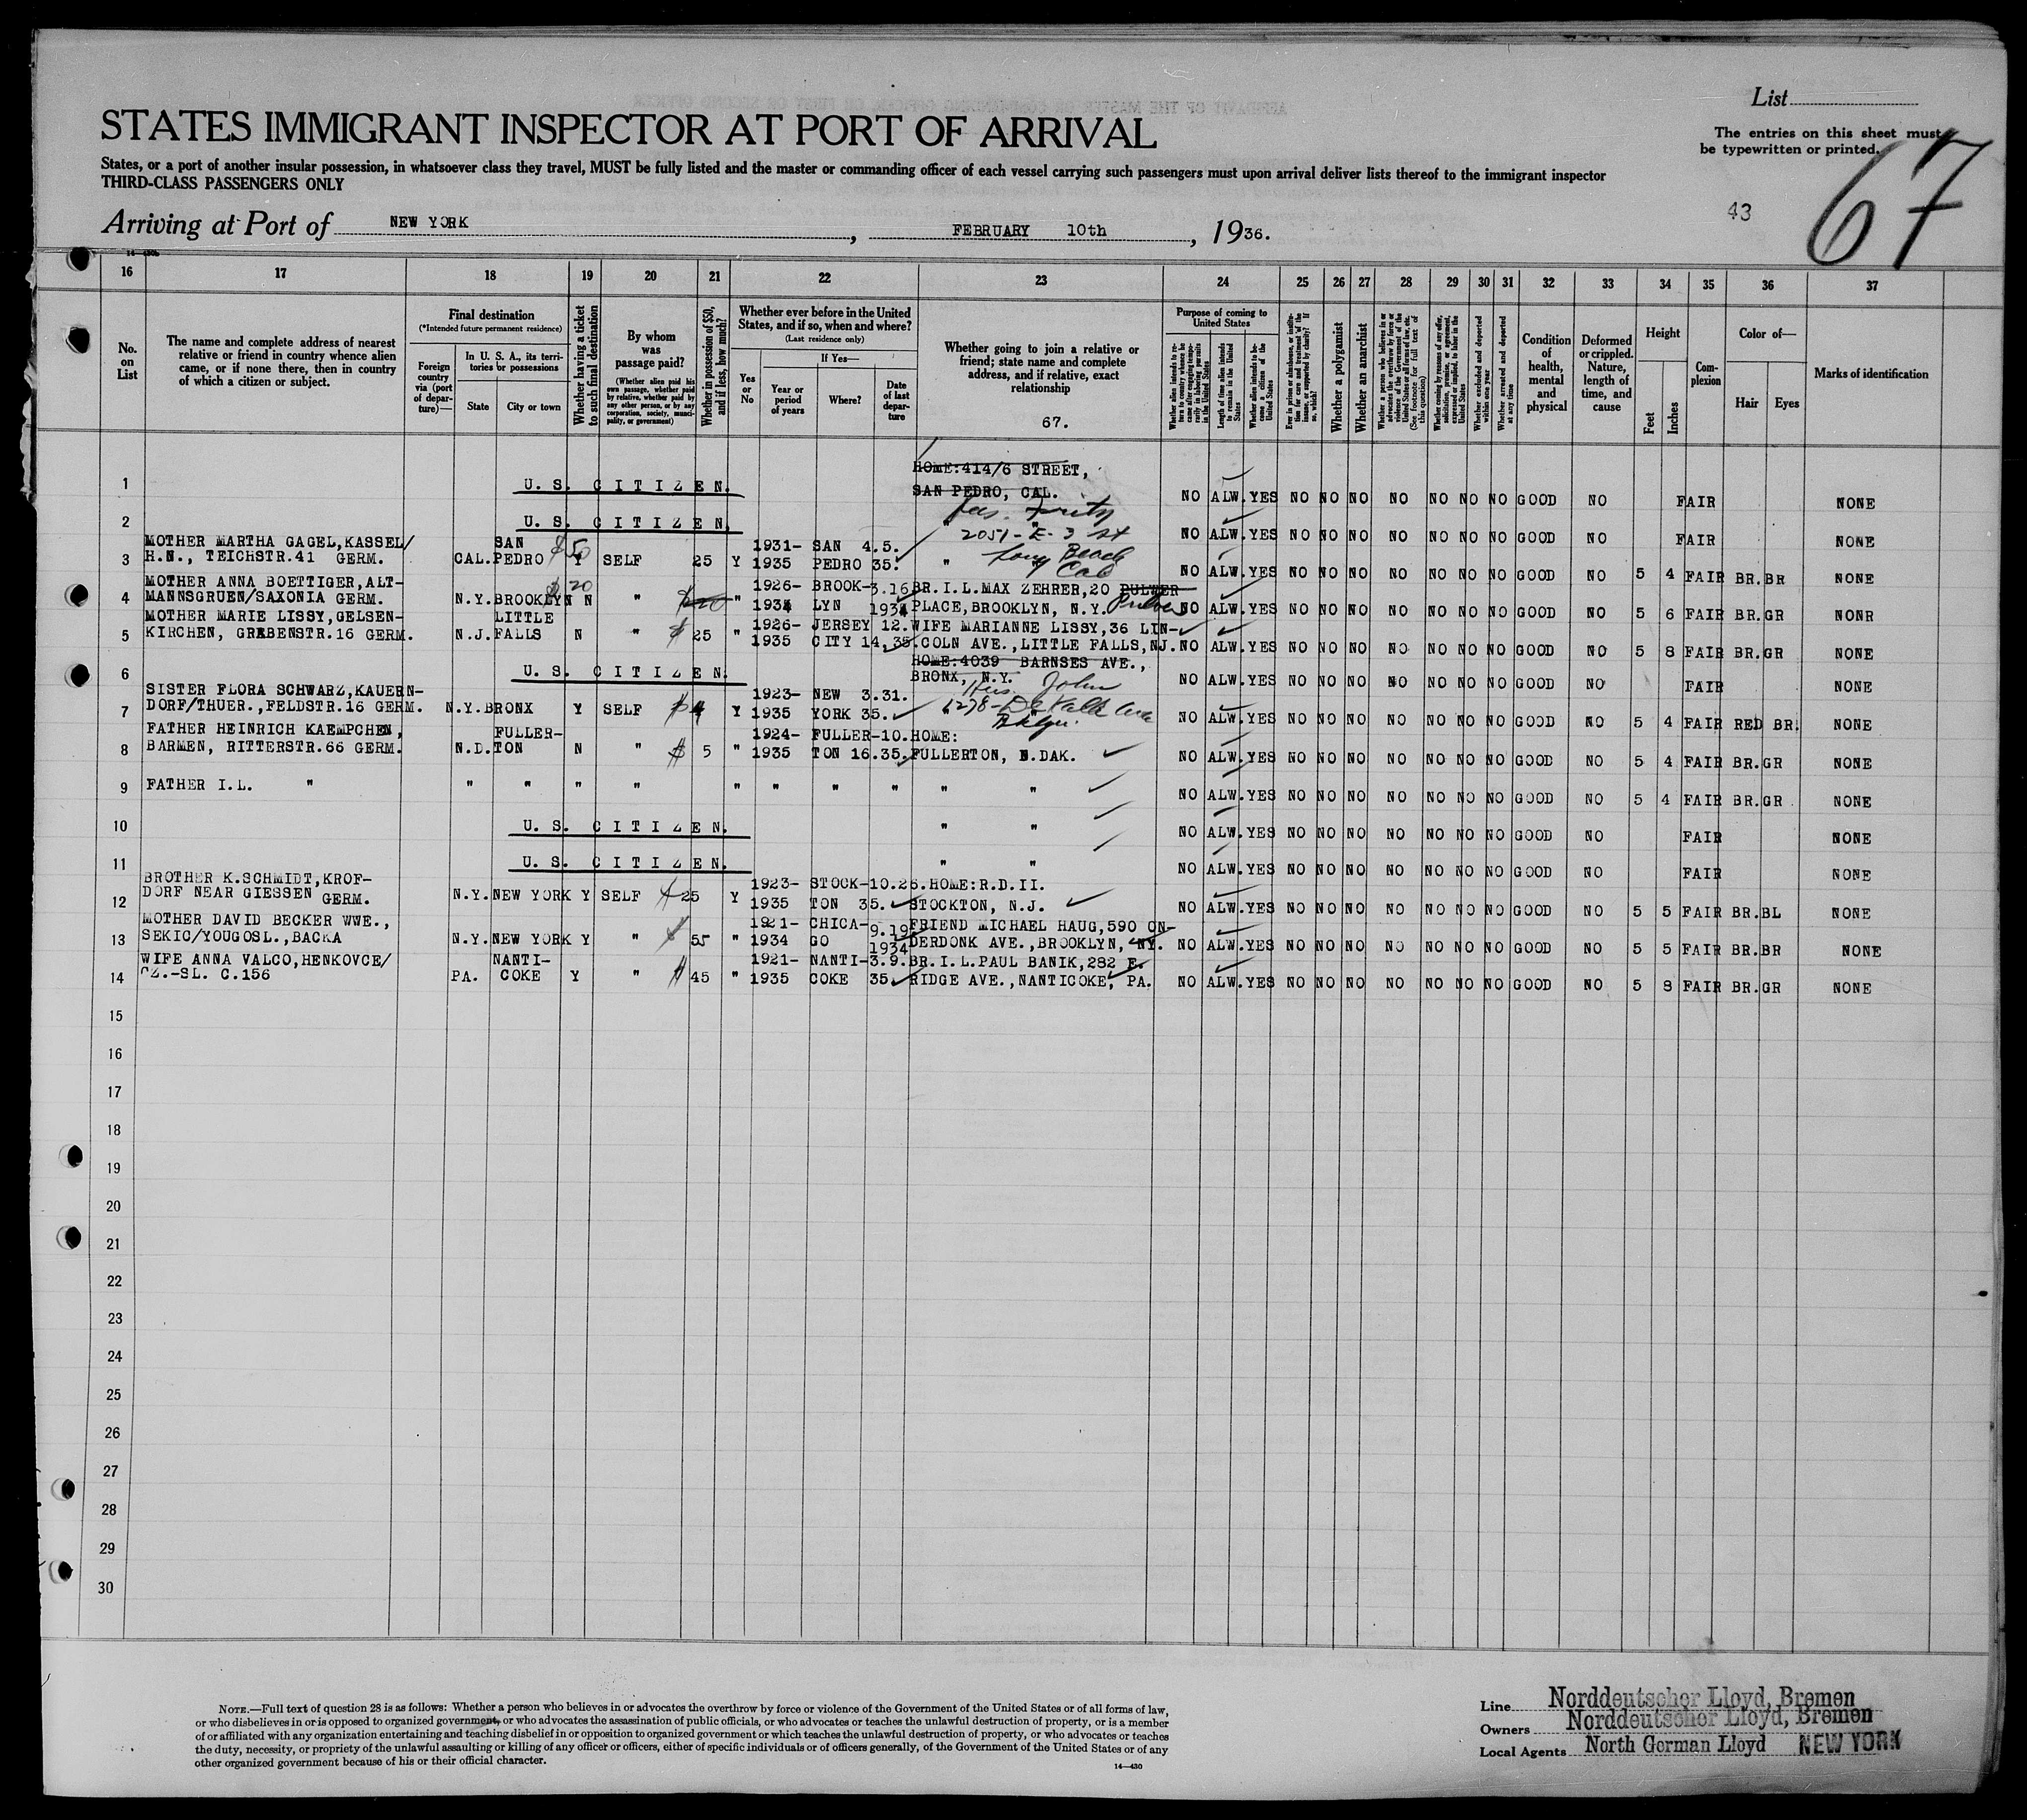 List
STATES IMMIGRANT INSPECTOR AT PORT OF ARRIVAL
The entries on this sheet must
be typewritten or printed.
67
States, or a port of another insular possession, in whatsoever class they travel, MUST be fully listed and the master or commanding officer of each vessel carrying such passengers must upon arrival deliver lists thereof to the immigrant inspector
THIRD-CLASS PASSENGERS ONLY
43
Arriving at Port of NEW YORK, FEBRUARY 10th, 1936.
16 17 18 19 20 21 22 23 24 25 26 27 28 29 30 31 32 33 34 35 36 37
No. on List
The name and complete address of nearest relative or friend in country whence alien came, or if none there, then in country of which a citizen or subject.
Final destination
(*Intended future permanent residence)
Foreign country via (port of departure)—
In U. S. A., its territories or possessions
State
City or town
Whether having a ticket to such final destination
By whom was passage paid?
(Whether alien paid his own passage, whether paid by relative, whether paid by any other person, or by any corporation, society, municipality, or government)
Whether in possession of $50, and if less, how much?
Whether ever before in the United States, and if so, when and where?
(Last residence only)
Yes or No
If Yes—
Year or period of years
Where?
Date of last departure
Whether going to join a relative or friend; state name and complete address, and if relative, exact relationship
67.
Purpose of coming to United States
Length of time alien intends to remain in the United States
Whether alien intends to become a citizen of the United States
Whether a polygamist
Whether an anarchist
Whether excluded and deported within one year
Whether arrested and deported at any time
Condition of health, mental and physical
Deformed or crippled. Nature, length of time, and cause
Height
Feet
Inches
Complexion
Color of—
Hair
Eyes
Marks of identification
HOME:414/6 STREET,
1 U. S. CITIZEN. SAN PEDRO, CAL. NO ALW. YES NO NO NO NO NO NO NO GOOD NO FAIR NONE
2 U. S. CITIZEN. " " NO ALW. YES NO NO NO NO NO NO NO GOOD NO FAIR NONE
2051-E-3 St
Long Beach
Cal
MOTHER MARTHA GAGEL,KASSEL/ SAN $50 1931- SAN 4.5.
3 H.N., TEICHSTR.41 GERM. CAL. PEDRO Y SELF 25 Y 1935 PEDRO 35. " NO ALW. YES NO NO NO NO NO NO NO GOOD NO 5 4 FAIR BR. BR NONE
MOTHER ANNA BOETTIGER,ALT- $20 1926- BROOK- 3.16 BR.I.L.MAX ZEHRER,20 PULWER
4 MANNSGRUEN/SAXONIA GERM. N.Y. BROOKLYN N " " 1934 LYN 1934 PLACE,BROOKLYN, N.Y. NO ALW. YES NO NO NO NO NO NO NO GOOD NO 5 6 FAIR BR. GR NONR
MOTHER MARIE LISSY,GELSEN- LITTLE 1926- JERSEY 12. WIFE MARIANNE LISSY,36 LIN-
5 KIRCHEN, GRABENSTR.16 GERM. N.J. FALLS N " $ 25 " 1935 CITY 14,35. COLN AVE.,LITTLE FALLS,NJ. NO ALW. YES NO NO NO NO NO NO NO GOOD NO 5 8 FAIR BR. GR NONE
HOME:4039 BARNSES AVE.,
6 U. S. CITIZEN. BRONX, N.Y. NO ALW. YES NO NO NO NO NO NO NO GOOD NO FAIR NONE
Hus. John
SISTER FLORA SCHWARZ,KAUERN- 1923- NEW 3.31.
7 DORF/THUER.,FELDSTR.16 GERM. N.Y. BRONX Y SELF $ 4 Y 1935 YORK 35. " 1278- DeKalb Ave NO ALW. YES NO NO NO NO NO NO NO GOOD NO 5 4 FAIR RED BR. NONE
Bklyn.
FATHER HEINRICH KAEMPCHEN, FULLER- 1924- FULLER- 10. HOME:
8 BARMEN, RITTERSTR.66 GERM. N.D. TON N " $ 5 " 1935 TON 16.35. FULLERTON, N.DAK. NO ALW. YES NO NO NO NO NO NO NO GOOD NO 5 4 FAIR BR. GR NONE
9 FATHER I.L. " " " " " " " " " " " NO ALW. YES NO NO NO NO NO NO NO GOOD NO 5 4 FAIR BR. GR NONE
10 U. S. CITIZEN. " " NO ALW. YES NO NO NO NO NO NO NO GOOD NO FAIR NONE
11 U. S. CITIZEN. " " NO ALW. YES NO NO NO NO NO NO NO GOOD NO FAIR NONE
BROTHER K.SCHMIDT,KROF- 1923- STOCK- 10.26. HOME:R.D.II.
12 DORF NEAR GIESSEN GERM. N.Y. NEW YORK Y SELF $ 25 Y 1935 TON 35. STOCKTON, N.J. NO ALW. YES NO NO NO NO NO NO NO GOOD NO 5 5 FAIR BR. BL NONE
MOTHER DAVID BECKER WWE., 1921- CHICA- 9.19 FRIEND MICHAEL HAUG,590 ON-
13 SEKIC/YOUGOSL.,BACKA N.Y. NEW YORK Y " $ 55 " 1934 GO 1934 DERDONK AVE.,BROOKLYN, NY. NO ALW. YES NO NO NO NO NO NO NO GOOD NO 5 5 FAIR BR. BR NONE
WIFE ANNA VALCO,HENKOVCE/ NANTI- 1921- NANTI- 3.9. BR.I.L.PAUL BANIK,282 E.
14 CZ.-SL. C.156 PA. COKE Y " $ 45 " 1935 COKE 35. RIDGE AVE.,NANTICOKE, PA. NO ALW. YES NO NO NO NO NO NO NO GOOD NO 5 8 FAIR BR. GR NONE
15
16
17
18
19
20
21
22
23
24
25
26
27
28
29
30
NOTE.—Full text of question 28 is as follows: Whether a person who believes in or advocates the overthrow by force or violence of the Government of the United States or of all forms of law,
or who disbelieves in or is opposed to organized government, or who advocates the assassination of public officials, or who advocates or teaches the unlawful destruction of property, or is a member
of or affiliated with any organization entertaining and teaching disbelief in or opposition to organized government or which teaches the unlawful destruction of property, or who advocates or teaches
the duty, necessity, or propriety of the unlawful assaulting or killing of any officer or officers, either of specific individuals or of officers generally, of the Government of the United States or of any
other organized government because of his or their official character.
14—430
Line Norddeutscher Lloyd, Bremen
Owners Norddeutscher Lloyd, Bremen
Local Agents North German Lloyd NEW YORK